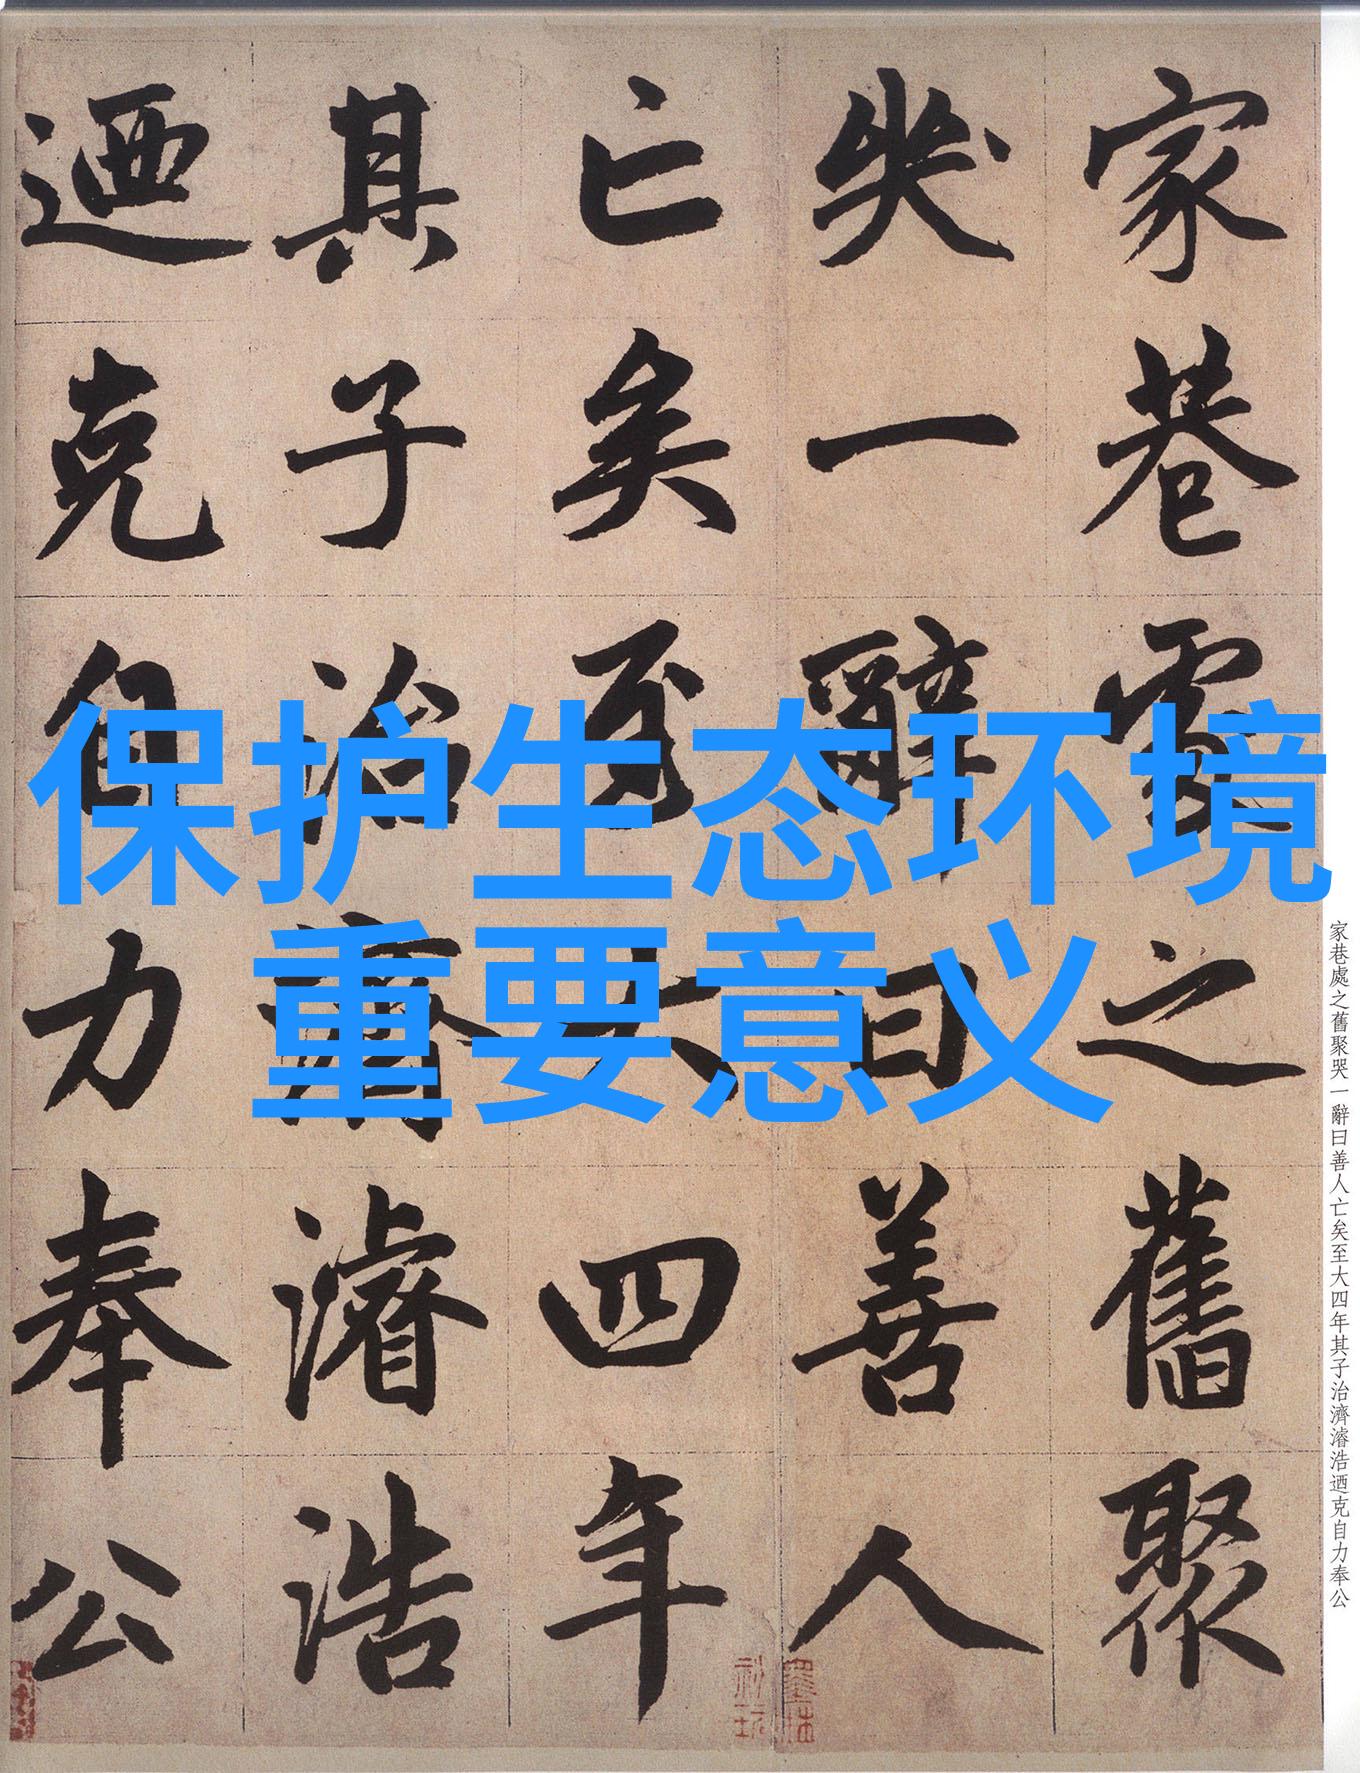 保护生态环境
重要意义
家巷處之舊聚
哭一辭曰善人
亡矣至大四年
其子治濟濬浩
迺克自力奉公
家巷處之舊聚哭一辭曰善人亡矣至大四年其子治濟濬浩迺克自力奉公
墨林
秘玩